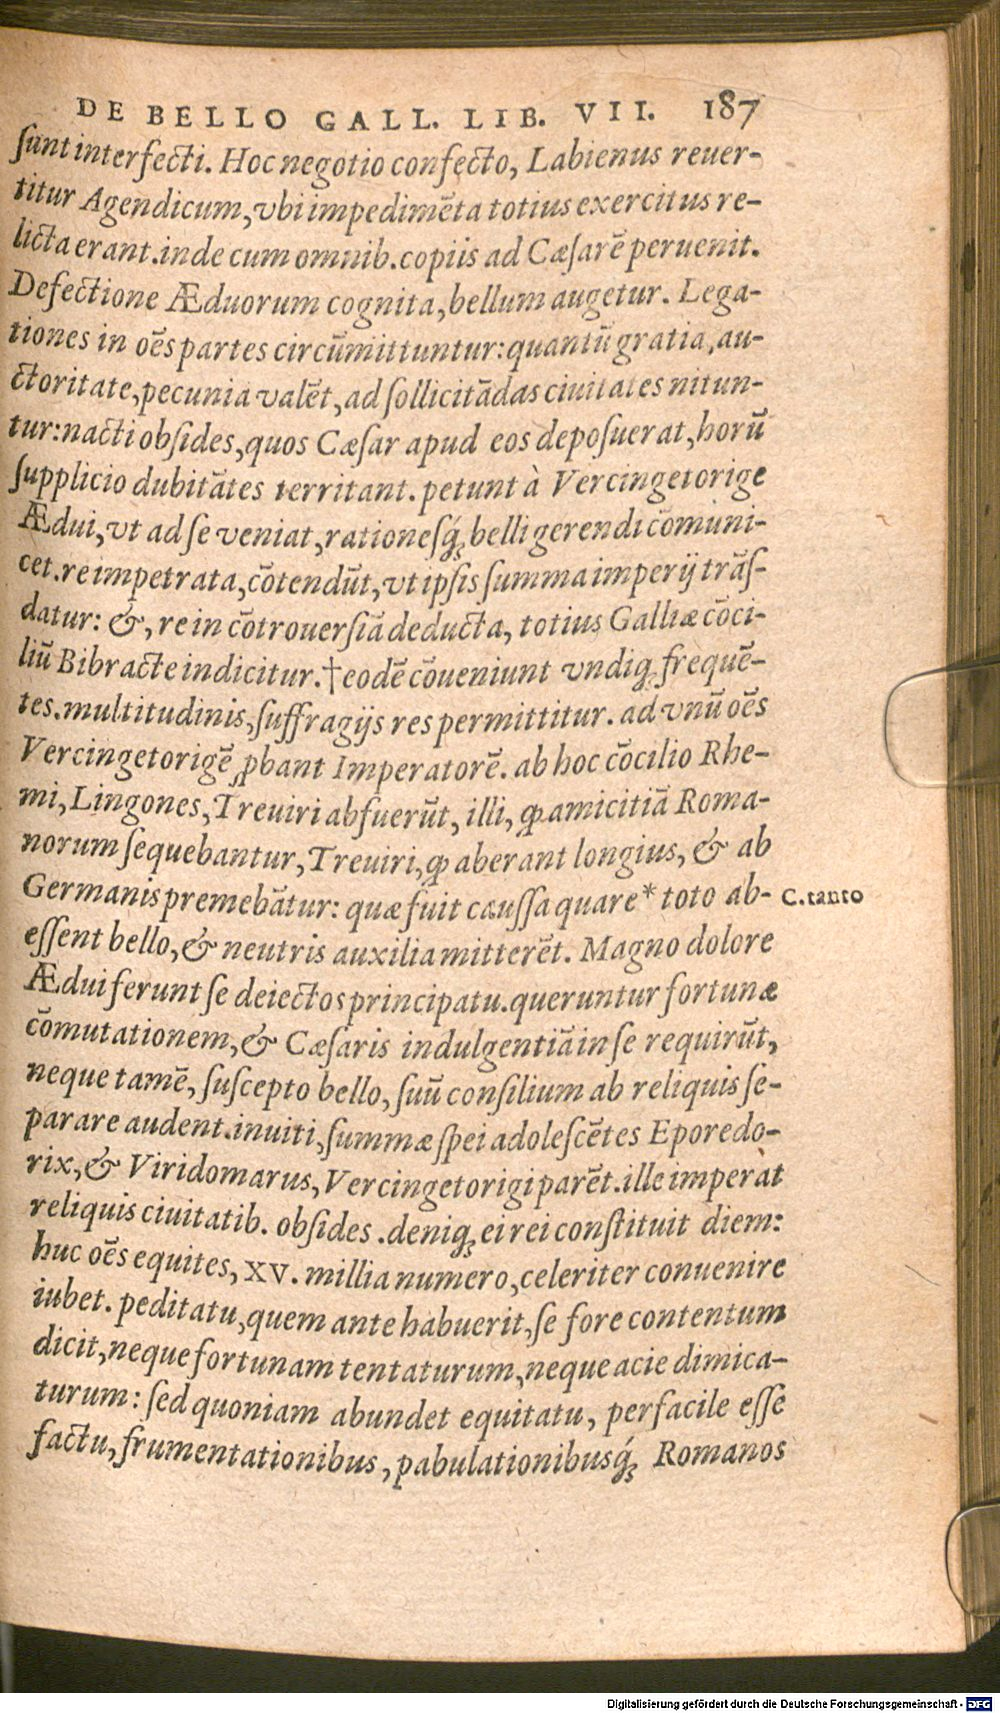 DE BELLO GALL. LIB. VII. 187
ſunt interfecti. Hoc negotio confecto, Labienus reuer-
titur Agendicum, vbi impedimēta totius exercitus re-
licta erant. inde cum omnib. copiis ad Cæſarē peruenit.
Defectione Æduorum cognita, bellum augetur. Lega-
tiones in oēs partes circūmittuntur: quantū gratia, au-
ctoritate, pecunia valēt, ad ſollicitādas ciuitates nitun-
tur: nacti obſides, quos Cæſar apud eos depoſuerat, horū
ſupplicio dubitātes territant. petunt à Vercingetorige
Ædui, vt ad ſe veniat, rationeſq́; belli gerendi cōmuni-
cet. re impetrata, cōtendūt, vt ipſis ſumma imperij trāſ-
datur: &, re in cōtrouerſiā deducta, totius Galliæ cōci-
liū Bibracte indicitur. †eodē cōueniunt vndiq; frequē-
tes. multitudinis, ſuffragijs res permittitur. ad vnū oēs
Vercingetorigē ꝓbant Imperatorē. ab hoc cōcilio Rhe-
mi, Lingones, Treuiri abfuerūt, illi, ꝙ amicitiā Roma-
norum ſequebantur, Treuiri, ꝙ aberant longius, & ab
Germanis premebātur: quæ fuit cauſſa quare * toto ab-
C. tanto
eſſent bello, & neutris auxilia mitterēt. Magno dolore
Ædui ferunt ſe deiectos principatu. queruntur fortunæ
cōmutationem, & Cæſaris indulgentiā in ſe requirūt,
neque tamē, ſuſcepto bello, ſuū conſilium ab reliquis ſe-
parare audent. inuiti, ſummæ ſpei adoleſcētes Eporedo-
rix, & Viridomarus, Vercingetorigi parēt. ille imperat
reliquis ciuitatib. obſides. deniq; ei rei conſtituit diem:
huc oēs equites, XV. millia numero, celeriter conuenire
iubet. peditatu, quem ante habuerit, ſe fore contentum
dicit, neque fortunam tentaturum, neque acie dimica-
turum: ſed quoniam abundet equitatu, perfacile eſſe
factu, frumentationibus, pabulationibusq́; Romanos
Digitalisierung gefördert durch die Deutsche Forschungsgemeinschaft - DFG